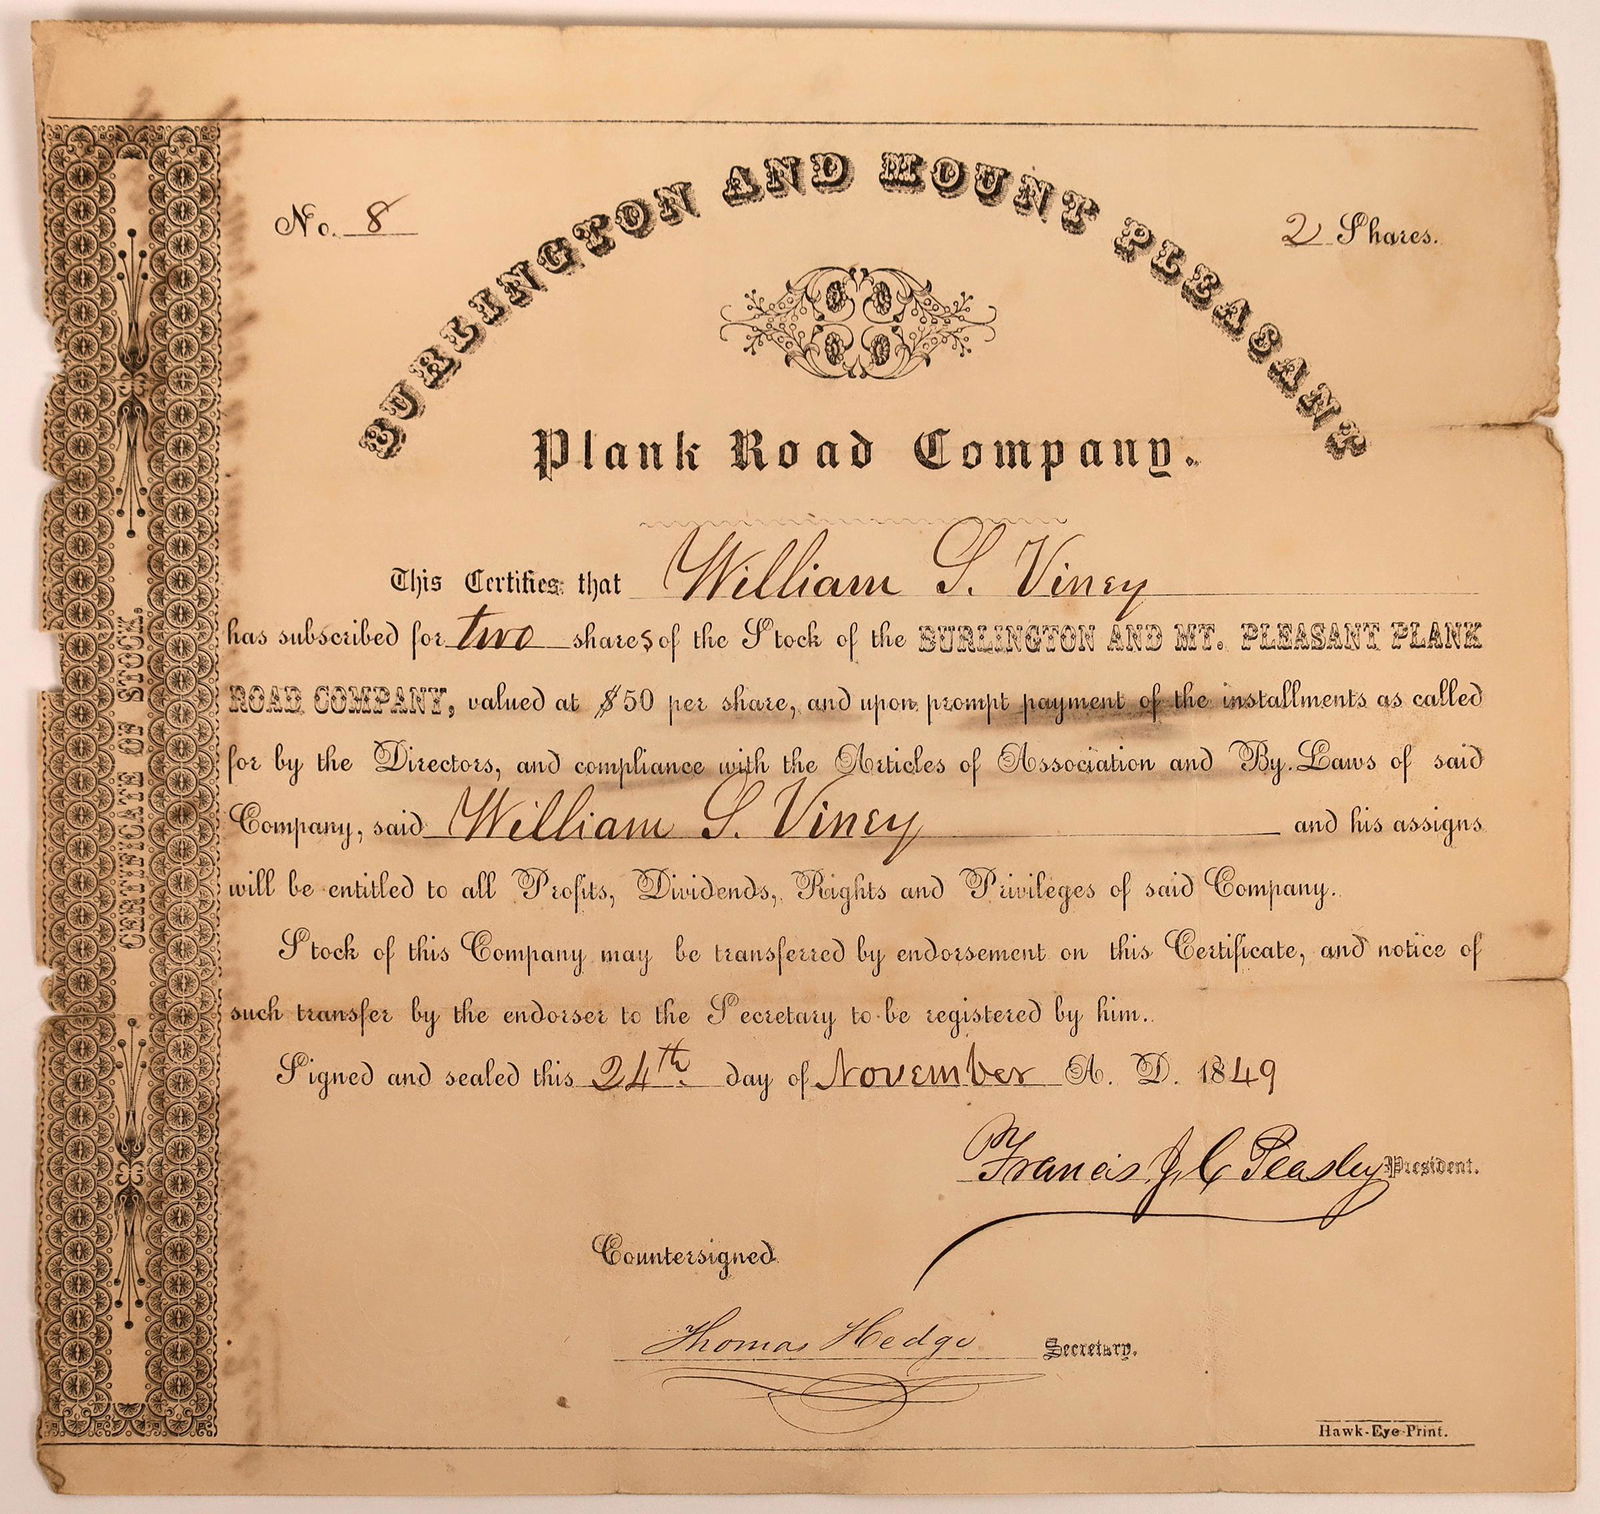 No. 8
2 Shares.
BURLINGTON AND MOUNT PLEASANT
Plank Road Company.
This Certifies that William S. Viney
has subscribed for two shares of the Stock of the BURLINGTON AND MT. PLEASANT PLANK
ROAD COMPANY, valued at $50 per share, and upon prompt payment of the installments as called
for by the Directors, and compliance with the Articles of Association and By-Laws of said
Company, said William S. Viney and his assigns
will be entitled to all Profits, Dividends, Rights and Privileges of said Company.
Stock of this Company may be transferred by endorsement on this Certificate, and notice of
such transfer by the endorser to the Secretary to be registered by him.
Signed and sealed this 24th day of November A. D. 1849
Francis J C Peasley President.
Countersigned
Thomas Hedge Secretary.
Hawk-Eye-Print.
CERTIFICATE OF STOCK.